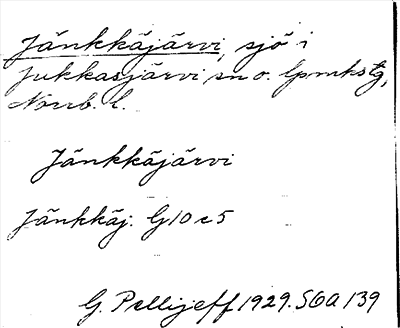 Jänkkäjärvi, sjö i
Jukkasjärvi sn o. lpmkstg,
Norrb. l.
Jänkkäjärvi
Jänkkäj. G10c5
G. Pellijeff 1929. S6a 139